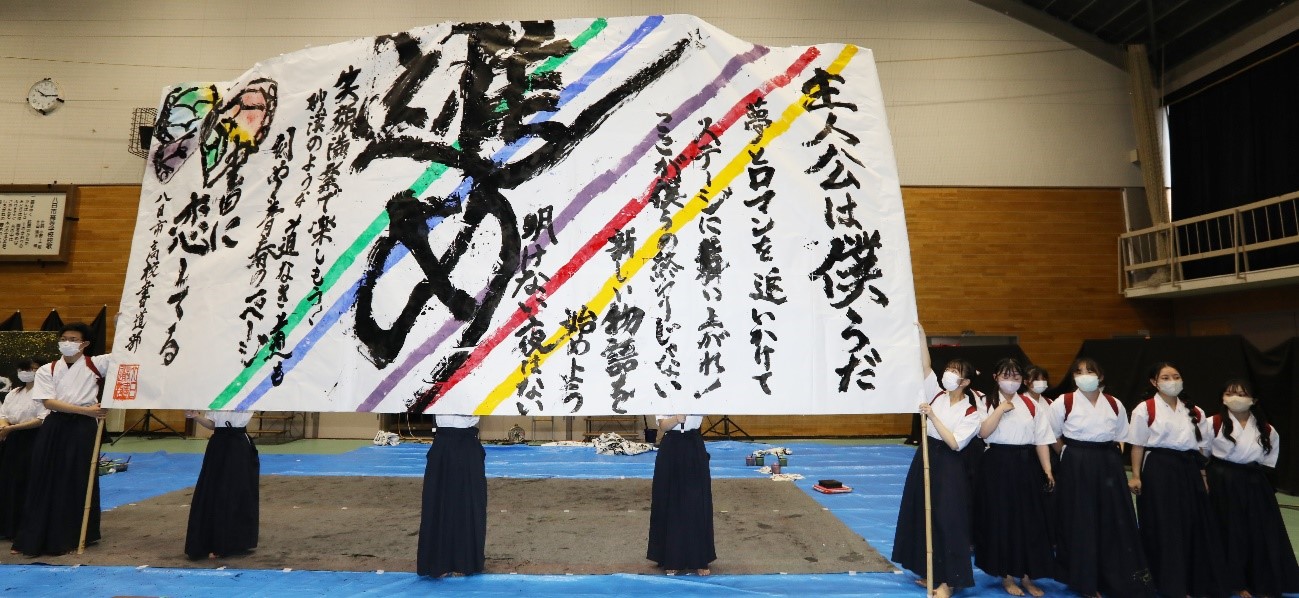 主人公は僕らだ
夢とロマンを追いかけて
ステージに舞い上がれ!
ここが僕らの終りじゃない
新しい物語を
始めよう
明けない夜はない
進め
失敗満業で楽しもう
砂漠のような道なき道も
刻め青春の1ページ
書に
恋してる
八日市高校書道部